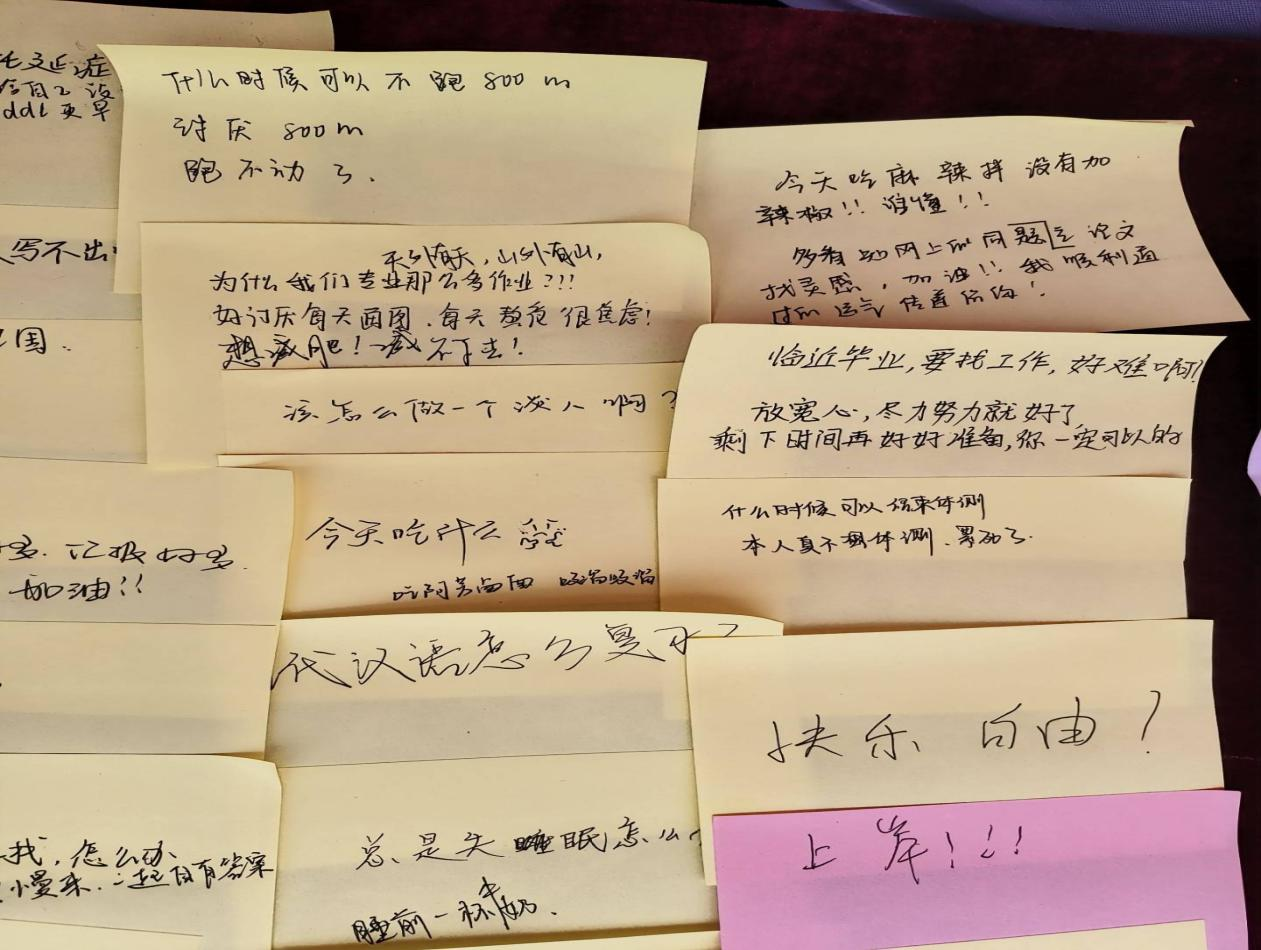 症
ddl更早
什么时候可以不跑800m
讨厌800m
跑不动了.
今天吃麻辣拌没有加
辣椒!!谁懂!!
多看知网上的问题论文
找灵感,加油!!我顺利通
过的运气传着给你!
写不出
天外有天,山外有山,
为什么我们专业那么多作业???
好讨厌每天画图.每天熬夜很焦虑!
想减肥!减不下去!
周.
临近毕业,要找工作,好难啊!
放宽心,尽力努力就好了
剩下时间再好好准备,你一定可以的
该怎么做一个淡人啊?
什么时候可以结束体测
本人真不想体测.累死了.
今天吃什么
吃阿芳面团
多.汇报好多.
加油!!
代汉语怎么复习?
快乐 自由?
上岸!!!
找,怎么办
慢来.一起自有答案
总是失睡眠怎么
睡前一杯牛奶.